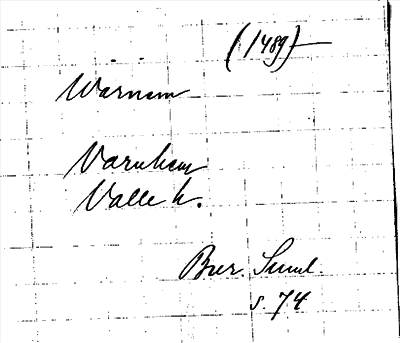 (1489)
Warnem
Varnhem
Valle h.
Brer. Suml.
s. 74